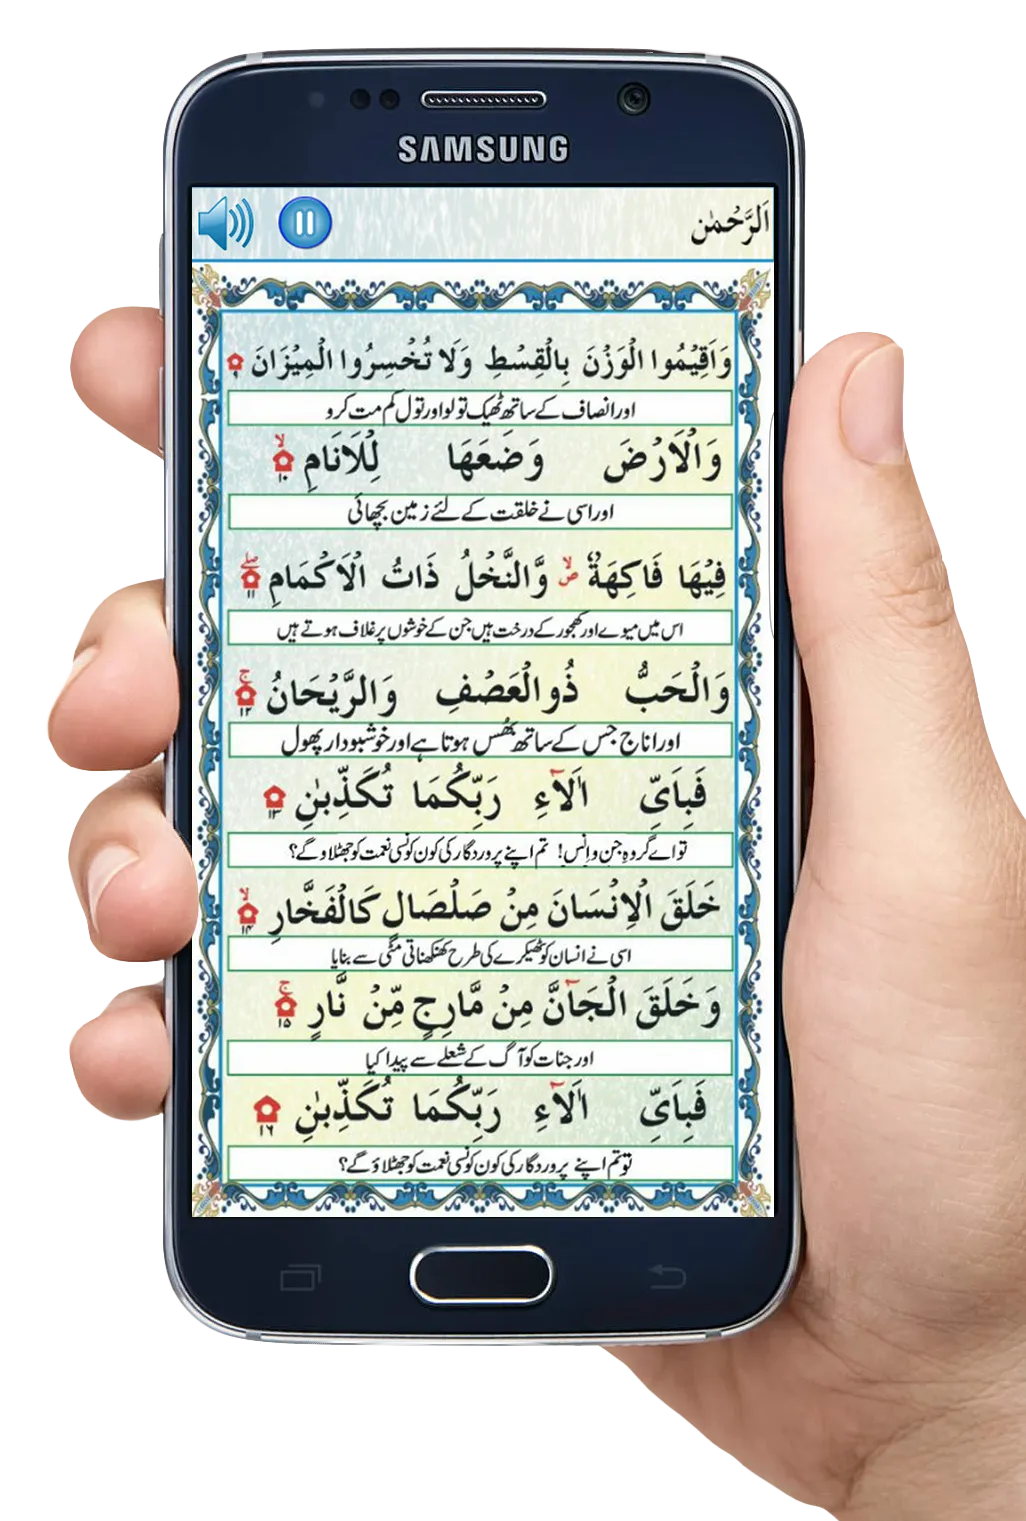 SAMSUNG
اَلرَّحْمٰن
وَاَقِيْمُوا الْوَزْنَ بِالْقِسْطِ وَلَا تُخْسِرُوا الْمِيْزَانَ ۹
اور انصاف کے ساتھ ٹھیک تولو اور تول کم مت کرو
وَالْاَرْضَ وَضَعَهَا لِلْاَنَامِ ۙ ۱۰
اور اسی نے خلقت کے لئے زمین بچھائی
فِيْهَا فَاكِهَةٌ ۙ ص وَّالنَّخْلُ ذَاتُ الْاَكْمَامِ ۖ ۱۱
اس میں میوے اور کھجور کے درخت ہیں جن کے خوشوں پر غلاف ہوتے ہیں
وَالْحَبُّ ذُو الْعَصْفِ وَالرَّيْحَانُ ۚ ۱۲
اور اناج جس کے ساتھ بھُس ہوتا ہے اور خوشبودار پھول
فَبِاَيِّ اٰلَآءِ رَبِّكُمَا تُكَذِّبٰنِ ۱۳
تو اے گروہِ جن و اِنس! تم اپنے پروردگار کی کون کونسی نعمت کو جھٹلاو گے؟
خَلَقَ الْاِنْسَانَ مِنْ صَلْصَالٍ كَالْفَخَّارِ ۙ ۱۴
اسی نے انسان کو ٹھیکرے کی طرح کھنکھناتی مٹی سے بنایا
وَخَلَقَ الْجَآنَّ مِنْ مَّارِجٍ مِّنْ نَّارٍ ۚ ۱۵
اور جنات کو آگ کے شعلے سے پیدا کیا
فَبِاَيِّ اٰلَآءِ رَبِّكُمَا تُكَذِّبٰنِ ۱۶
تو تم اپنے پروردگار کی کون کونسی نعمت کو جھٹلاؤ گے؟